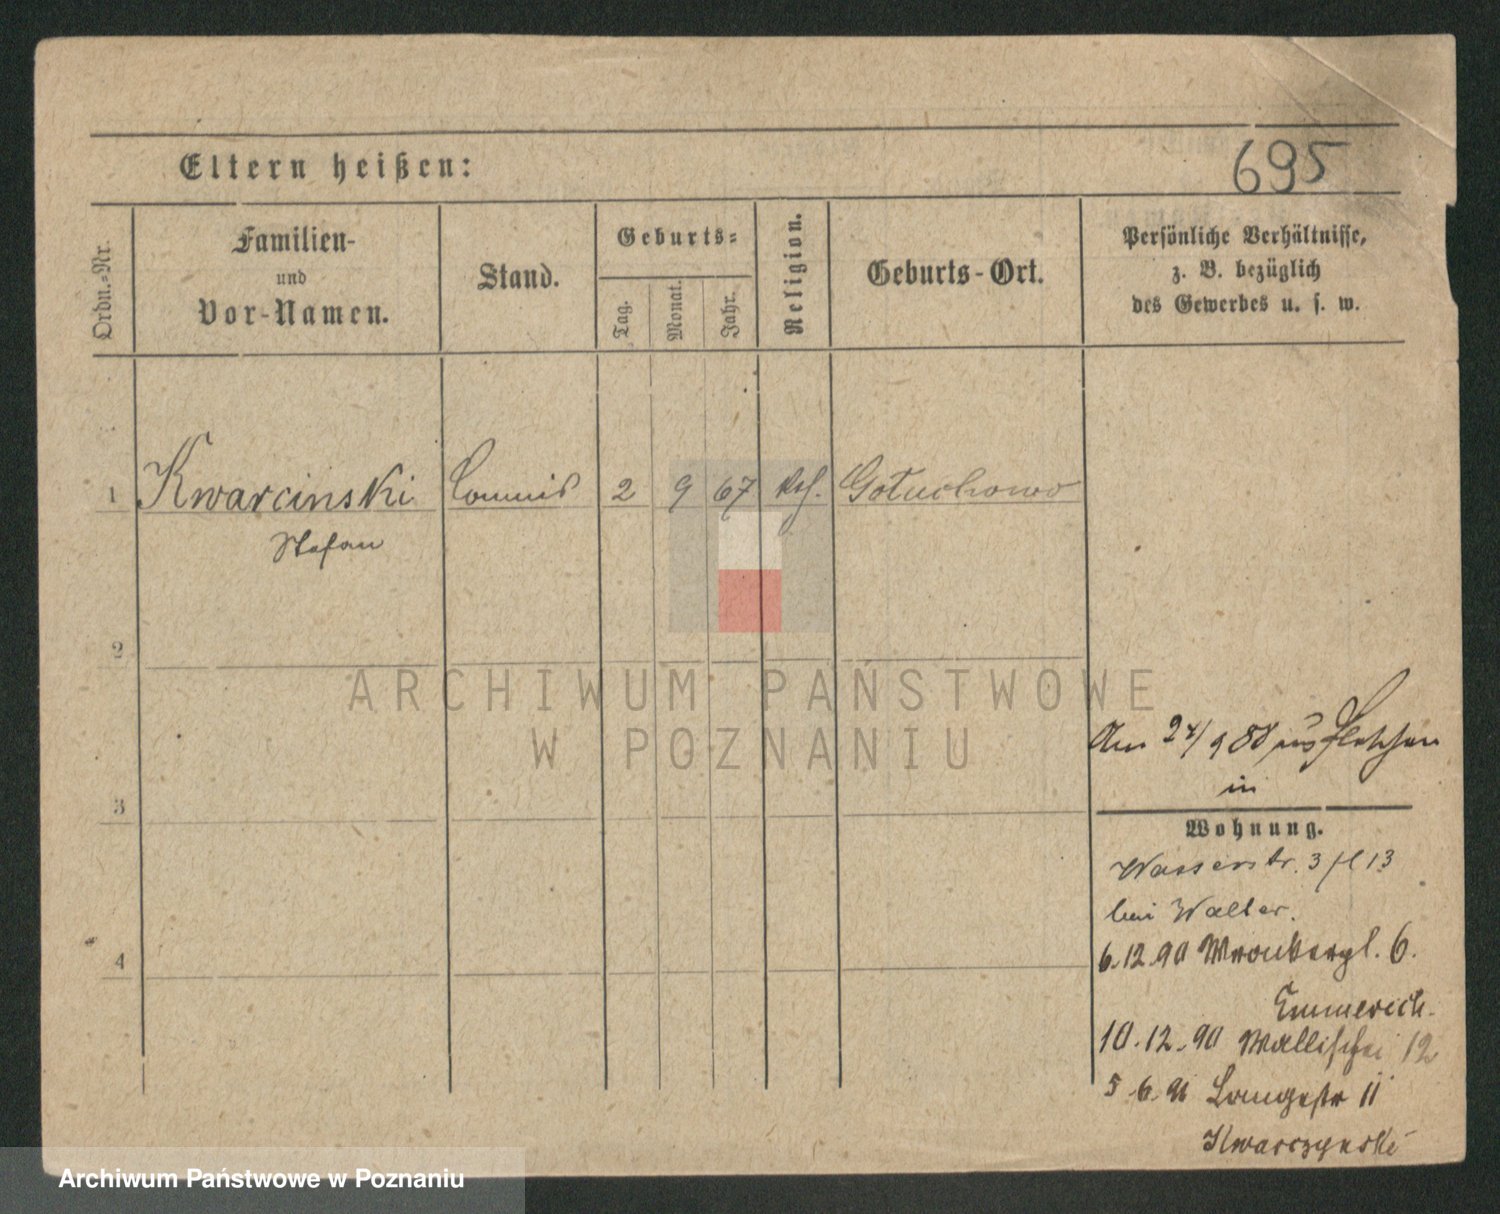 Eltern heißen:
695
Ordn.-Nr.
Familien-
und
Vor-Namen.
Stand.
Geburts-
Tag.
Monat.
Jahr.
Religion.
Geburts-Ort.
Persönliche Verhältnisse,
z. B. bezüglich
des Gewerbes u. s. w.
1 Kwarcinski Commis 2 9 67 Gołuchowo
Stefan
2
3
4
Am 24/9 88 aus Pleschen
in
Wohnung.
Wasserstr. 3
bei Walter.
6.12.90 Wronkerpl. 6.
Emmerich.
10.12.90 Wallischei 12
5.6.91 Langestr 11
Kwarczynski
ARCHIWUM PAŃSTWOWE
W POZNANIU
Archiwum Państwowe w Poznaniu